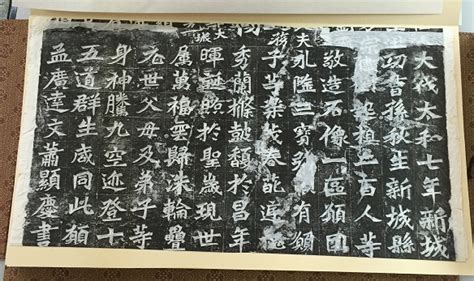 大代太和七年新城
功曹孫秋生新城縣
起祖二百人等
敬造石像一區願國
永隆三寶弥顯有願
子等榮茂春葩庭槐
秀蘭條鼓馥於昌年
暉誕照於聖歲現世
屬萬福雲歸洙輪疊
元世父母及弟子等
身神騰九空迹登十
五道群生咸同此願
孟廣達文蕭顯慶書